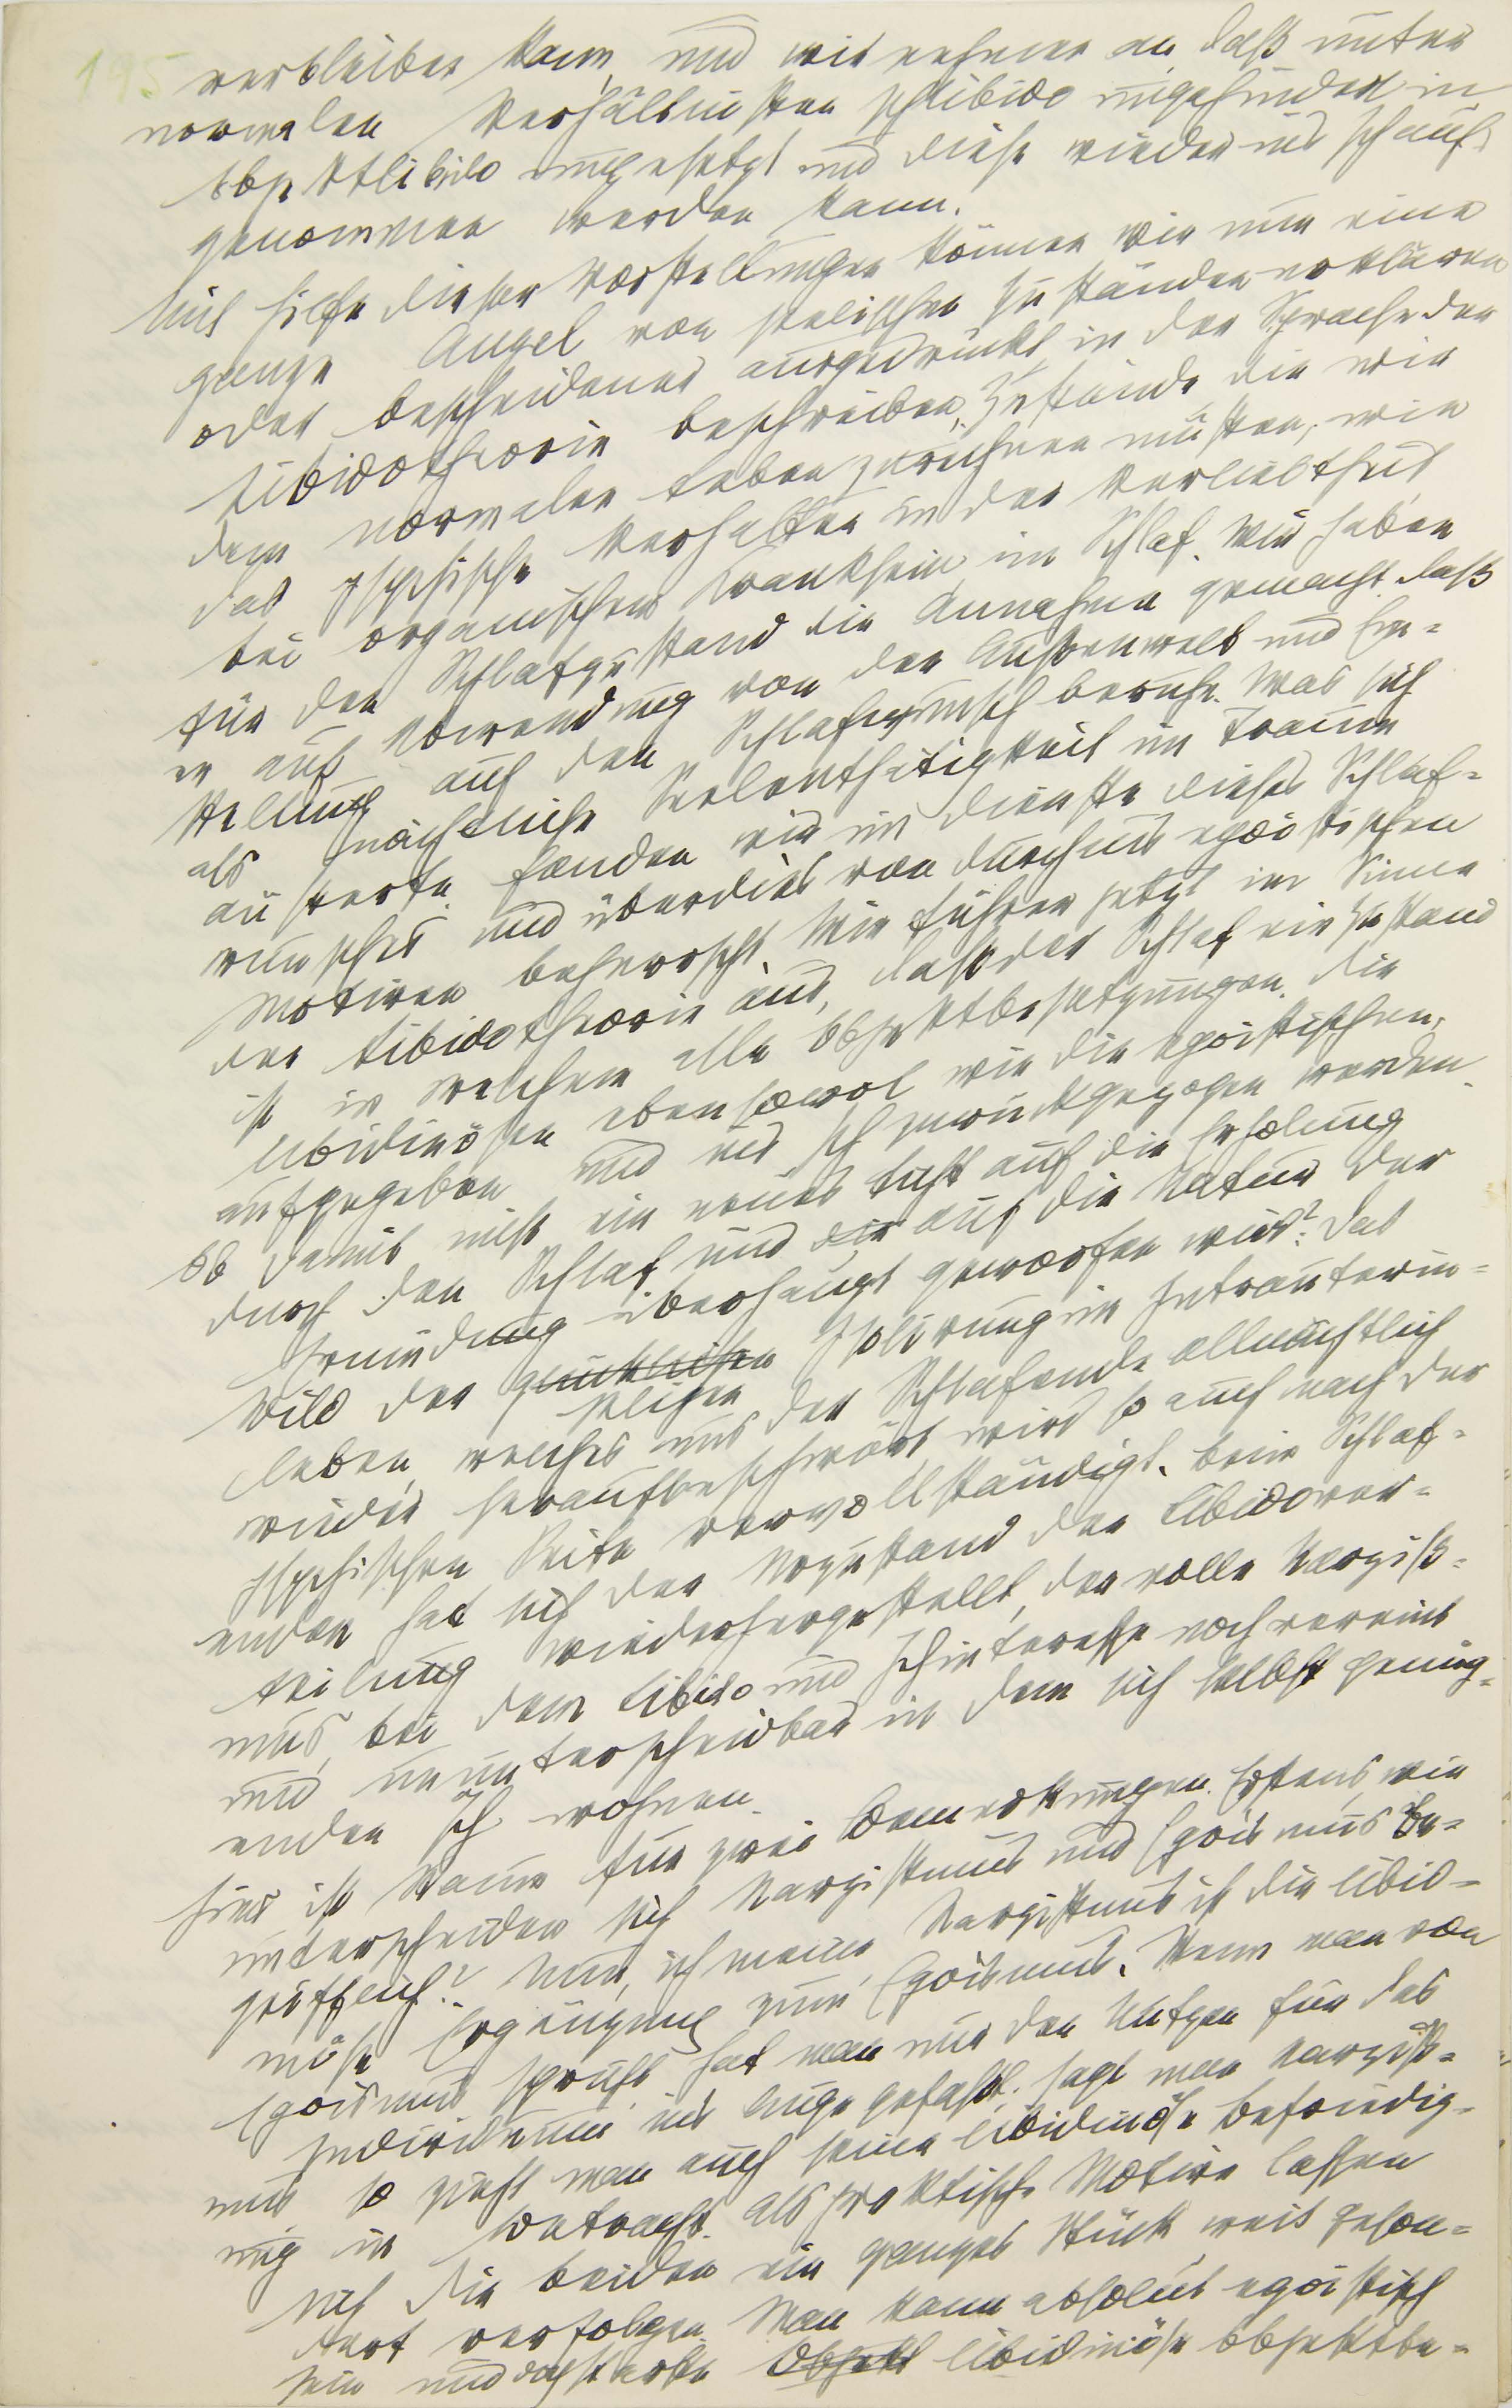 195
verbleiben kann, und wir nehmen an, daß unter
normalen Verhältnissen Ichlibido ungehindert in
Objektlibido umgesetzt und diese wieder ins Ich auf-
genommen werden kann.
Mit Hilfe dieser Vorstellungen können wir nun eine
ganze Anzal von seelischen Zuständen erklären
oder bescheidener ausgedrückt, in der Sprache der
Libidotheorie beschreiben, Zustände die wir
dem normalen Leben zurechnen müssten, wie
das psychische Verhalten in der Verliebtheit,
bei organischem Kranksein, im Schlaf. Wir haben
für den Schlafzustand die Annahme gemacht, daß
er auf Abwendung von der Außenwelt und Ein-
stellung auf den Schlafwunsch beruhe. Was sich
als nächtliche Seelenthätigkeit im Traume
äusserte, fanden wir im Dienste dieses Schlaf-
wunsches und überdies von durchaus egoistischen
Motiven beherrscht. Wir führen jetzt im Sinne
der Libidotheorie aus, daß der Schlaf ein Zustand
ist, in welchem alle Objektbesetzungen, die
libidinösen ebensowol wie die egoistischen,
aufgegeben und ins Ich zurückgezogen werden.
Ob damit nicht ein neues Licht auf die Erholung
durch den Schlaf und die auf die Natur der
Ermüdung überhaupt geworfen wird? Das
Bild der glücklichen Isolirung im Intrauterin-
seligen
leben, welches uns der Schlafende allnächtlich
wieder heraufbeschwört, wird so auch nach der
psychischen Seite vervollständigt. Beim Schlaf-
enden hat sich der Urzustand der Libidover-
teilung wiederhergestellt, der volle Narziß-
mus, bei dem Libido und Ichinteresse noch vereint
und ununterscheidbar in dem sich selbst genüg-
enden Ich wohnen.
Hier ist Raum für zwei Bemerkungen. Erstens, wie
unterscheiden sich Narzissmus und Egoismus be-
grifflich? Nun, ich meine, Narzissmus ist die libidi-
nöse Ergänzung zum Egoismus. Wenn man von
Egoismus spricht, hat man nur den Nutzen für das
Individuum ins Auge gefaßt; sagt man Narziss-
mus so zieht man auch seine libidinöse Befriedig-
ung in Betracht. Als praktische Motive lassen
sich die beiden ein ganzes Stück weit geson-
dert verfolgen. Man kann absolut egoistisch
sein und doch starke Objekt libidinöse Objektbe-